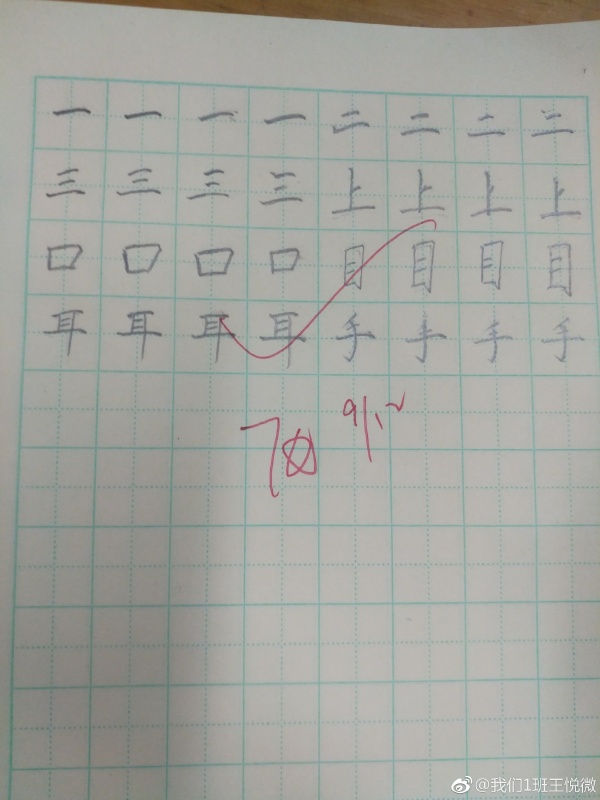 一 一 一 一 二 二 二 二
三 三 三 三 上 上 上 上
口 口 口 口 目 目 目 目
耳 耳 耳 耳 手 手 手 手
9/12
@我们1班王悦微